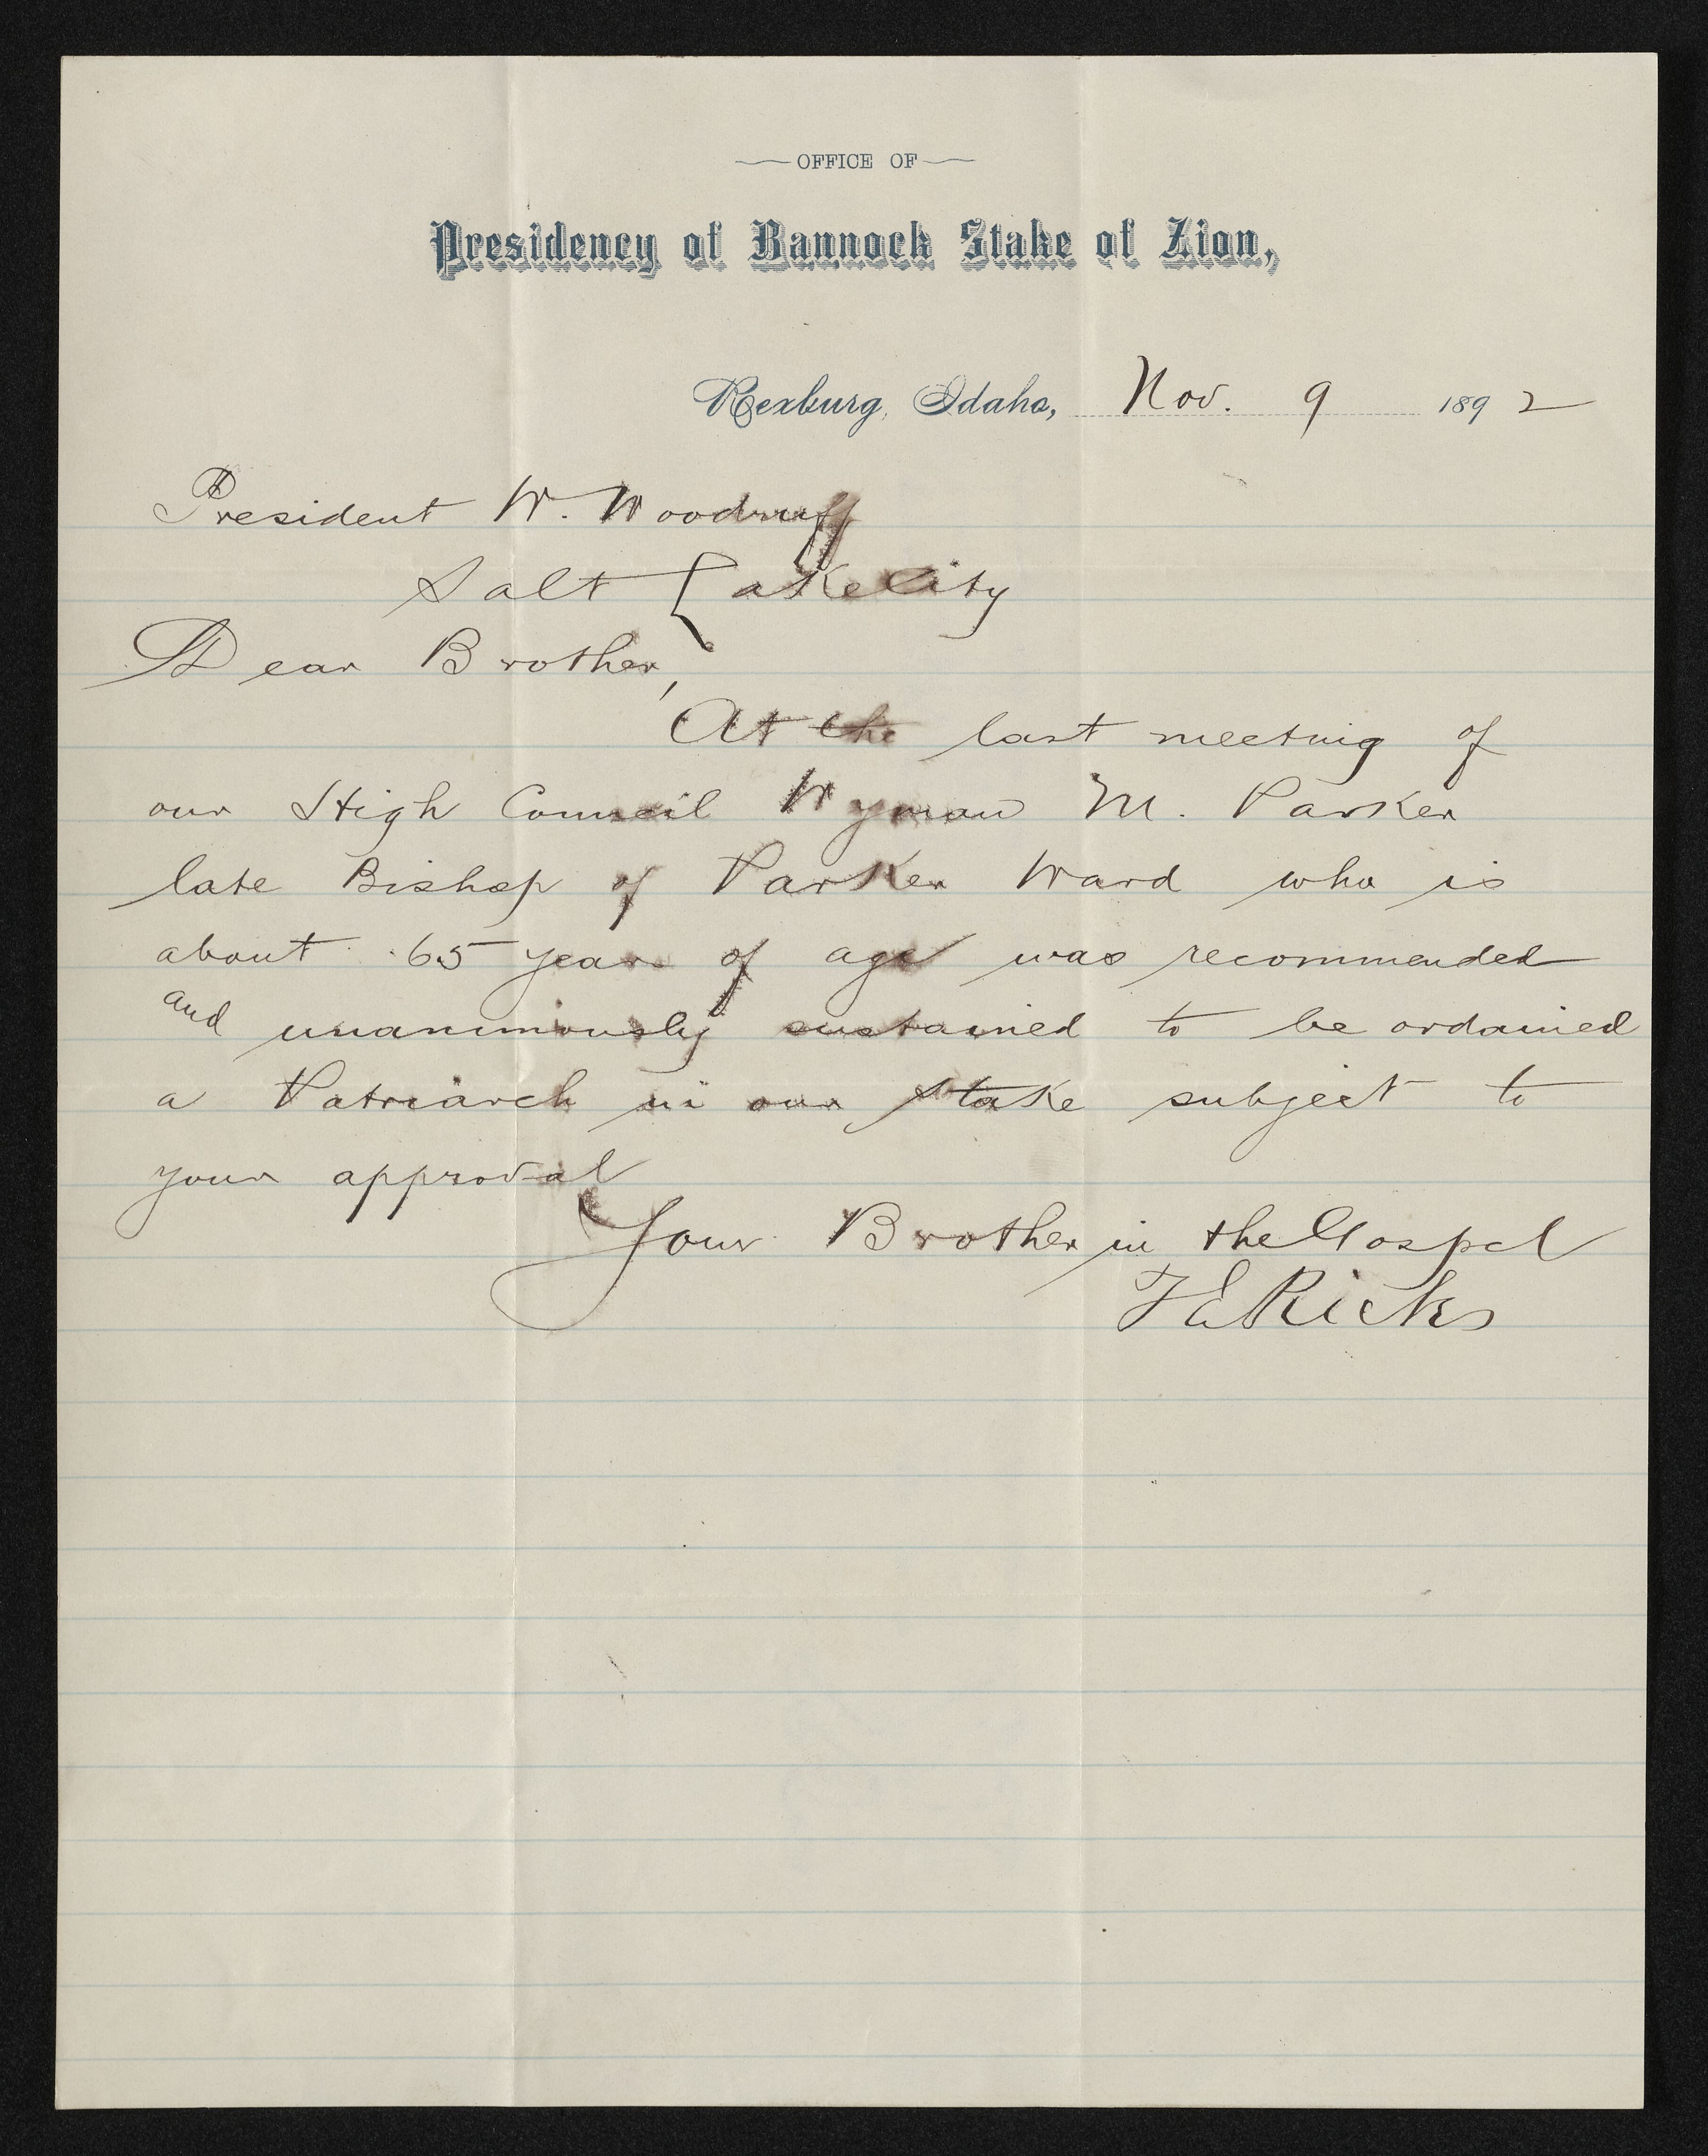 OFFICE OF
Presidency of Bannock Stake of Zion,
Rexburg, Idaho, Nov. 9 1892
President W. Woodruff
Salt Lake City
Dear Brother,
At the last meeting of
our High Council Wyman M. Parker
late Bishop of Parker Ward who is
about 65 years of age was recommended
and unanimously sustained to be ordained
a Patriarch in our Stake subject to
your approval
Your Brother in the Gospel
T E Ricks